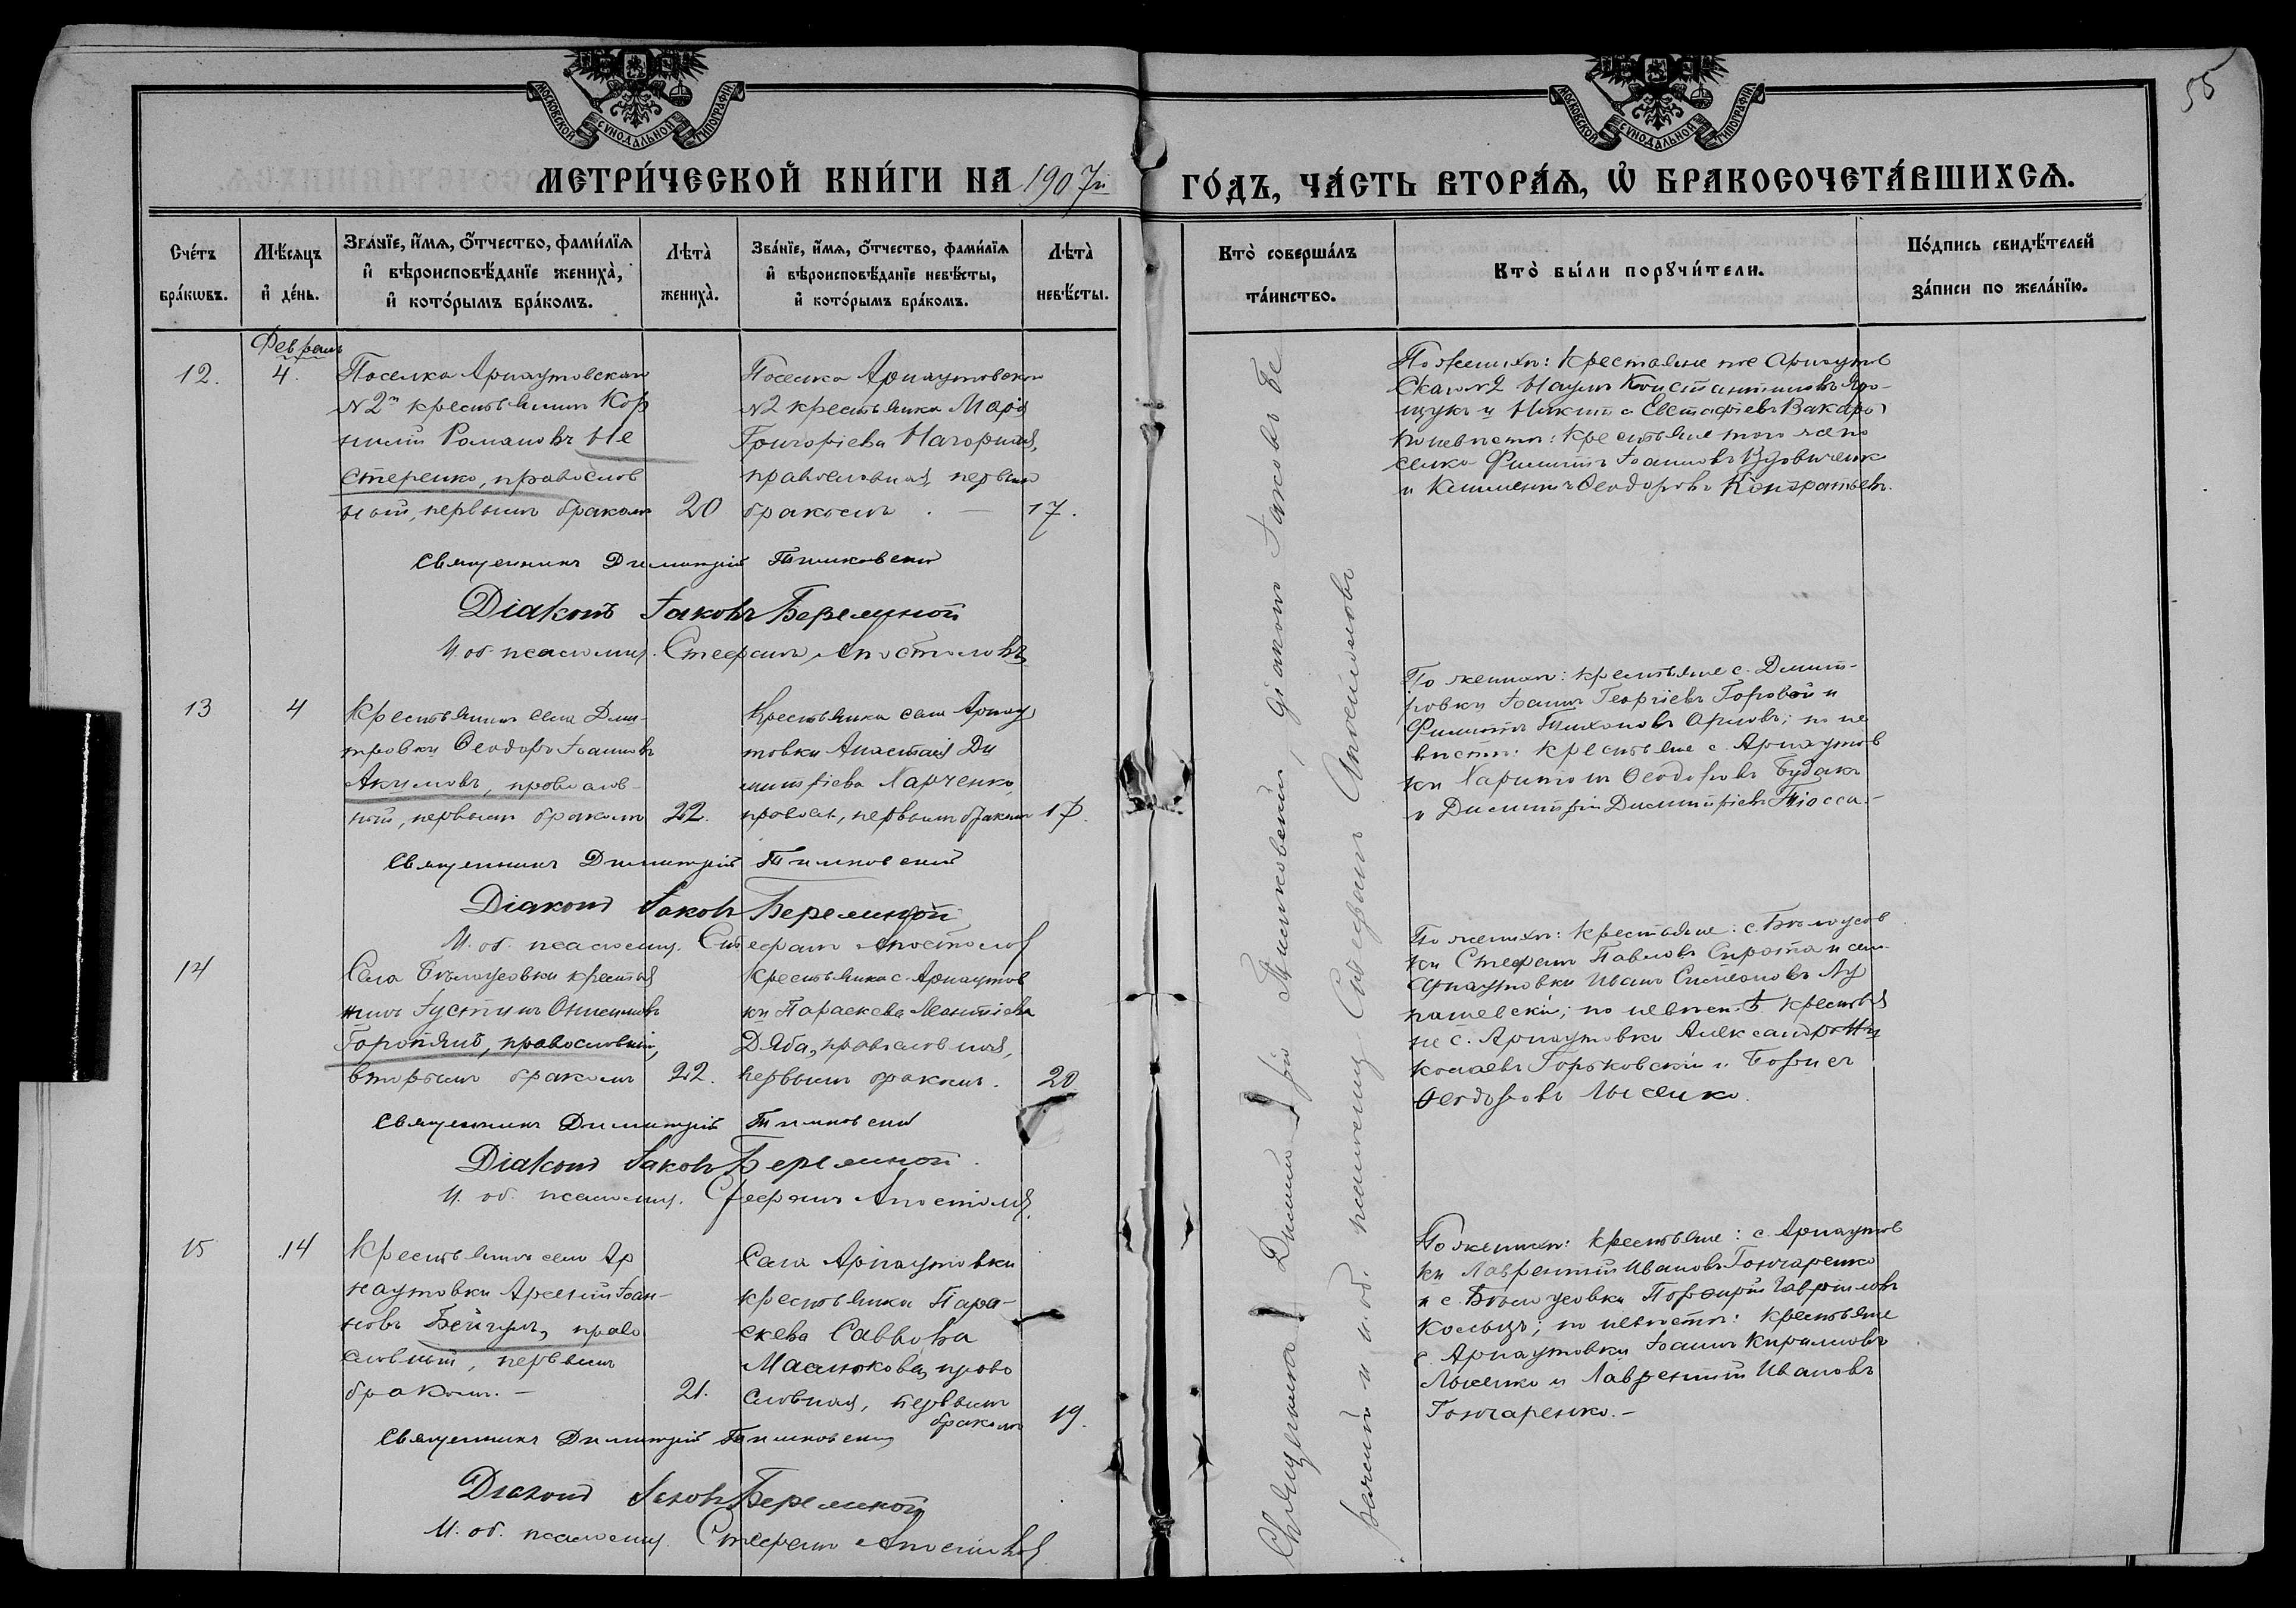 МОСКОВСКОЙ СУНОДАЛЬНОЙ ТИПОГРАФІИ
МОСКОВСКОЙ СУНОДАЛЬНОЙ ТИПОГРАФІИ
55
МЕТРИ́ЧЕСКОЙ КНИ́ГИ НА 1907й ГО́ДЪ, ЧА́СТЬ ВТОРА́Я, Ѡ БРАКОСОЧЕТА́ВШИХСЯ.
Сче́тъ бра́кѡвъ.
Мѣ́сяцъ и҆ де́нь.
Зва́нїе, и҆́мя, ѻ҆́тчество, фами́лїя
и҆ вѣроисповѣ́данїе жениха̀,
и҆ кото́рымъ бра́комъ.
Лѣта̀ жениха̀.
Зва́нїе, и҆́мя, ѻ҆́тчество, фами́лїя
и҆ вѣроисповѣ́данїе невѣ́сты,
и҆ кото́рымъ бра́комъ.
Лѣта̀ невѣ́сты.
Кто̀ соверша́лъ та́инство.
Кто̀ бы́ли порꙋчи́тели.
По́дпись свидѣ́телей за́писи по жела́нїю.
Февраль
12.
4.
Поселка Арнаутовскаго
№2й крестьянинъ Кор
нилій Романовъ Не
стеренко, православ
ный, первымъ бракомъ
20
Поселка Арнаутовскаго
№2 крестьянка Марія
Григоріева Нагорная,
православная, первымъ
бракомъ. —
17.
По женихѣ: крестьяне пос Арнаутов
скаго №2 Наумъ Константиновъ
и Никита Евстафіевъ Вакаръ
По невѣстѣ: крестьяне того же по
селка Филиппъ Іоанновъ Вдовиченко
и Климентъ Ѳеодоровъ Кондратьевъ.
Священникъ Димитрій Тимковскій
Діаконъ Іаковъ Беремнной
И. об. псаломщ. Стефанъ Апостоловъ
13
4
Крестьянинъ села Дми-
тровки Ѳеодоръ Іоанновъ
Акимовъ, православ-
ный, первымъ бракомъ
22.
Крестьянка села Арнау
товки Анастасія Ди
митріева Харченко,
правосл, первымъ бракомъ
По женихѣ: крестьяне с. Димит-
ровки Іоаннъ Георгіевъ Горовой и
Филиппъ Тихоновъ Орловъ; по не
вѣстѣ: крестьяне с. Арнаутов
ки Харитонъ Ѳеодоровъ Будакъ
и Димитрій Димитріевъ
Священникъ Димитрій Тимковскій
Діаконъ Іаковъ Беремнной
И. об. псаломщ. Стефанъ Апостоловъ
14
Села Бѣлоусовки крестья
нинъ Іустинъ Онисимовъ
Горопянъ, православный,
вторымъ бракомъ
22.
Крестьянка с. Арнаутов
ки Параскева Леонтіева
Дяба, православная,
первымъ бракомъ.
20
По женихѣ: крестьяне: с. Бѣлоусов
ки Стефанъ Павловъ Сирота и села
Арнаутовки Иванъ Симеоновъ Лу
пашевскій; по невѣстѣ крестья
не с. Арнаутовки Александръ Ни
колаевъ Горьковскій и
Ѳеодоровъ Лысенко.
Священникъ Димитрій Тимковскій
Діаконъ Іаковъ Беремнной
И. об. псаломщ. Стефанъ Апостоловъ
15
14
Крестьянинъ села Ар
наутовки Арсеній Іоан-
новъ Бейгулъ, право
славный, первымъ
бракомъ. —
21.
Села Арнаутовки
крестьянка Пара-
скева Саввова
Маслюкова, право
славная, первымъ
бракомъ
19.
По женихѣ: крестьяне: с. Арнаутов
ки Лаврентій Ивановъ Гончаренко
и с. Бѣлоусовки Порфирій Гавриловъ
Кольцъ; по невѣстѣ: крестьяне
с. Арнаутовки Іоаннъ Кирилловъ
Лысенко и Лаврентій Ивановъ
Гончаренко. —
Священникъ Димитрій Тимковскій
Діаконъ Іаковъ Беремнной
И. об. псаломщ. Стефанъ Апостоловъ
Священникъ Димитрій Тимковскій, діаконъ Іаковъ Бе
ремнной и и. об. псаломщ. Стефанъ Апостоловъ